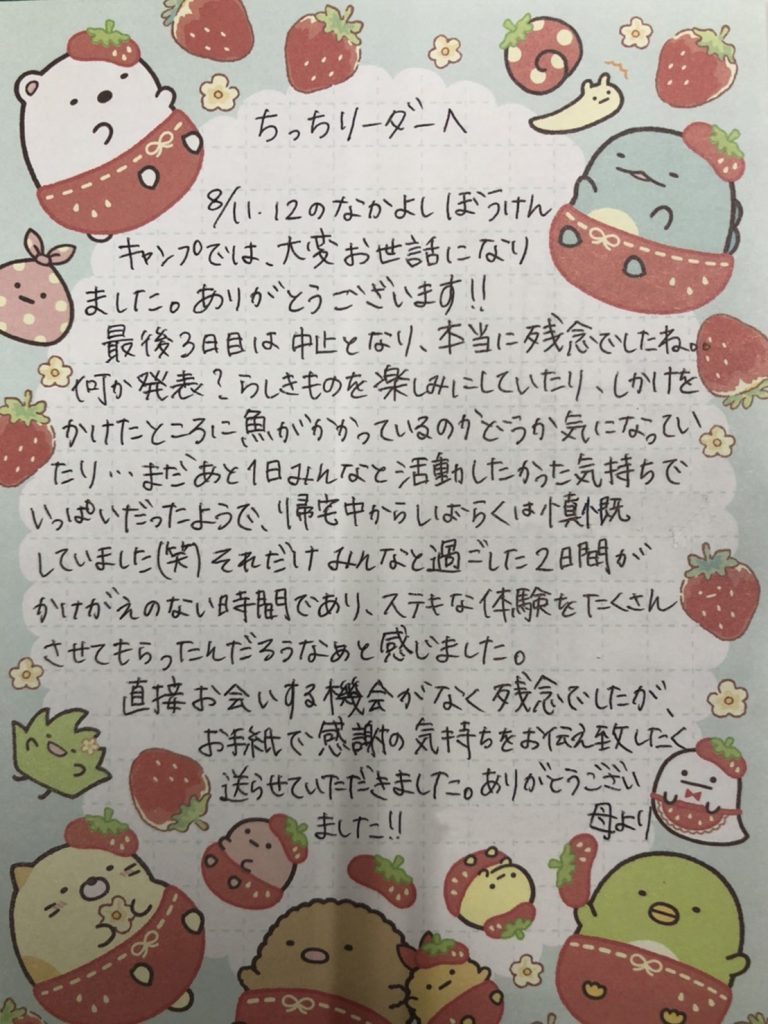 ちっちリーダーへ
8/11.12のなかよしぼうけん
キャンプでは、大変お世話になり
ました。ありがとうございます!!
最後3日目は中止となり、本当に残念でしたね。。
何か発表?らしきものを楽しみにしていたり、しかけを
かけたところに魚がかかっているのかどうか気になってい
たり…まだあと1日みんなと活動したかった気持ちで
いっぱいだったようで、帰宅中からしばらくは憤慨
していました(笑)それだけみんなと過ごした2日間が
かけがえのない時間であり、ステキな体験をたくさん
させてもらったんだろうなぁと感じました。
直接お会いする機会がなく残念でしたが、
お手紙で感謝の気持ちをお伝え致したく
送らせていただきました。ありがとうござい
ました!!
母より